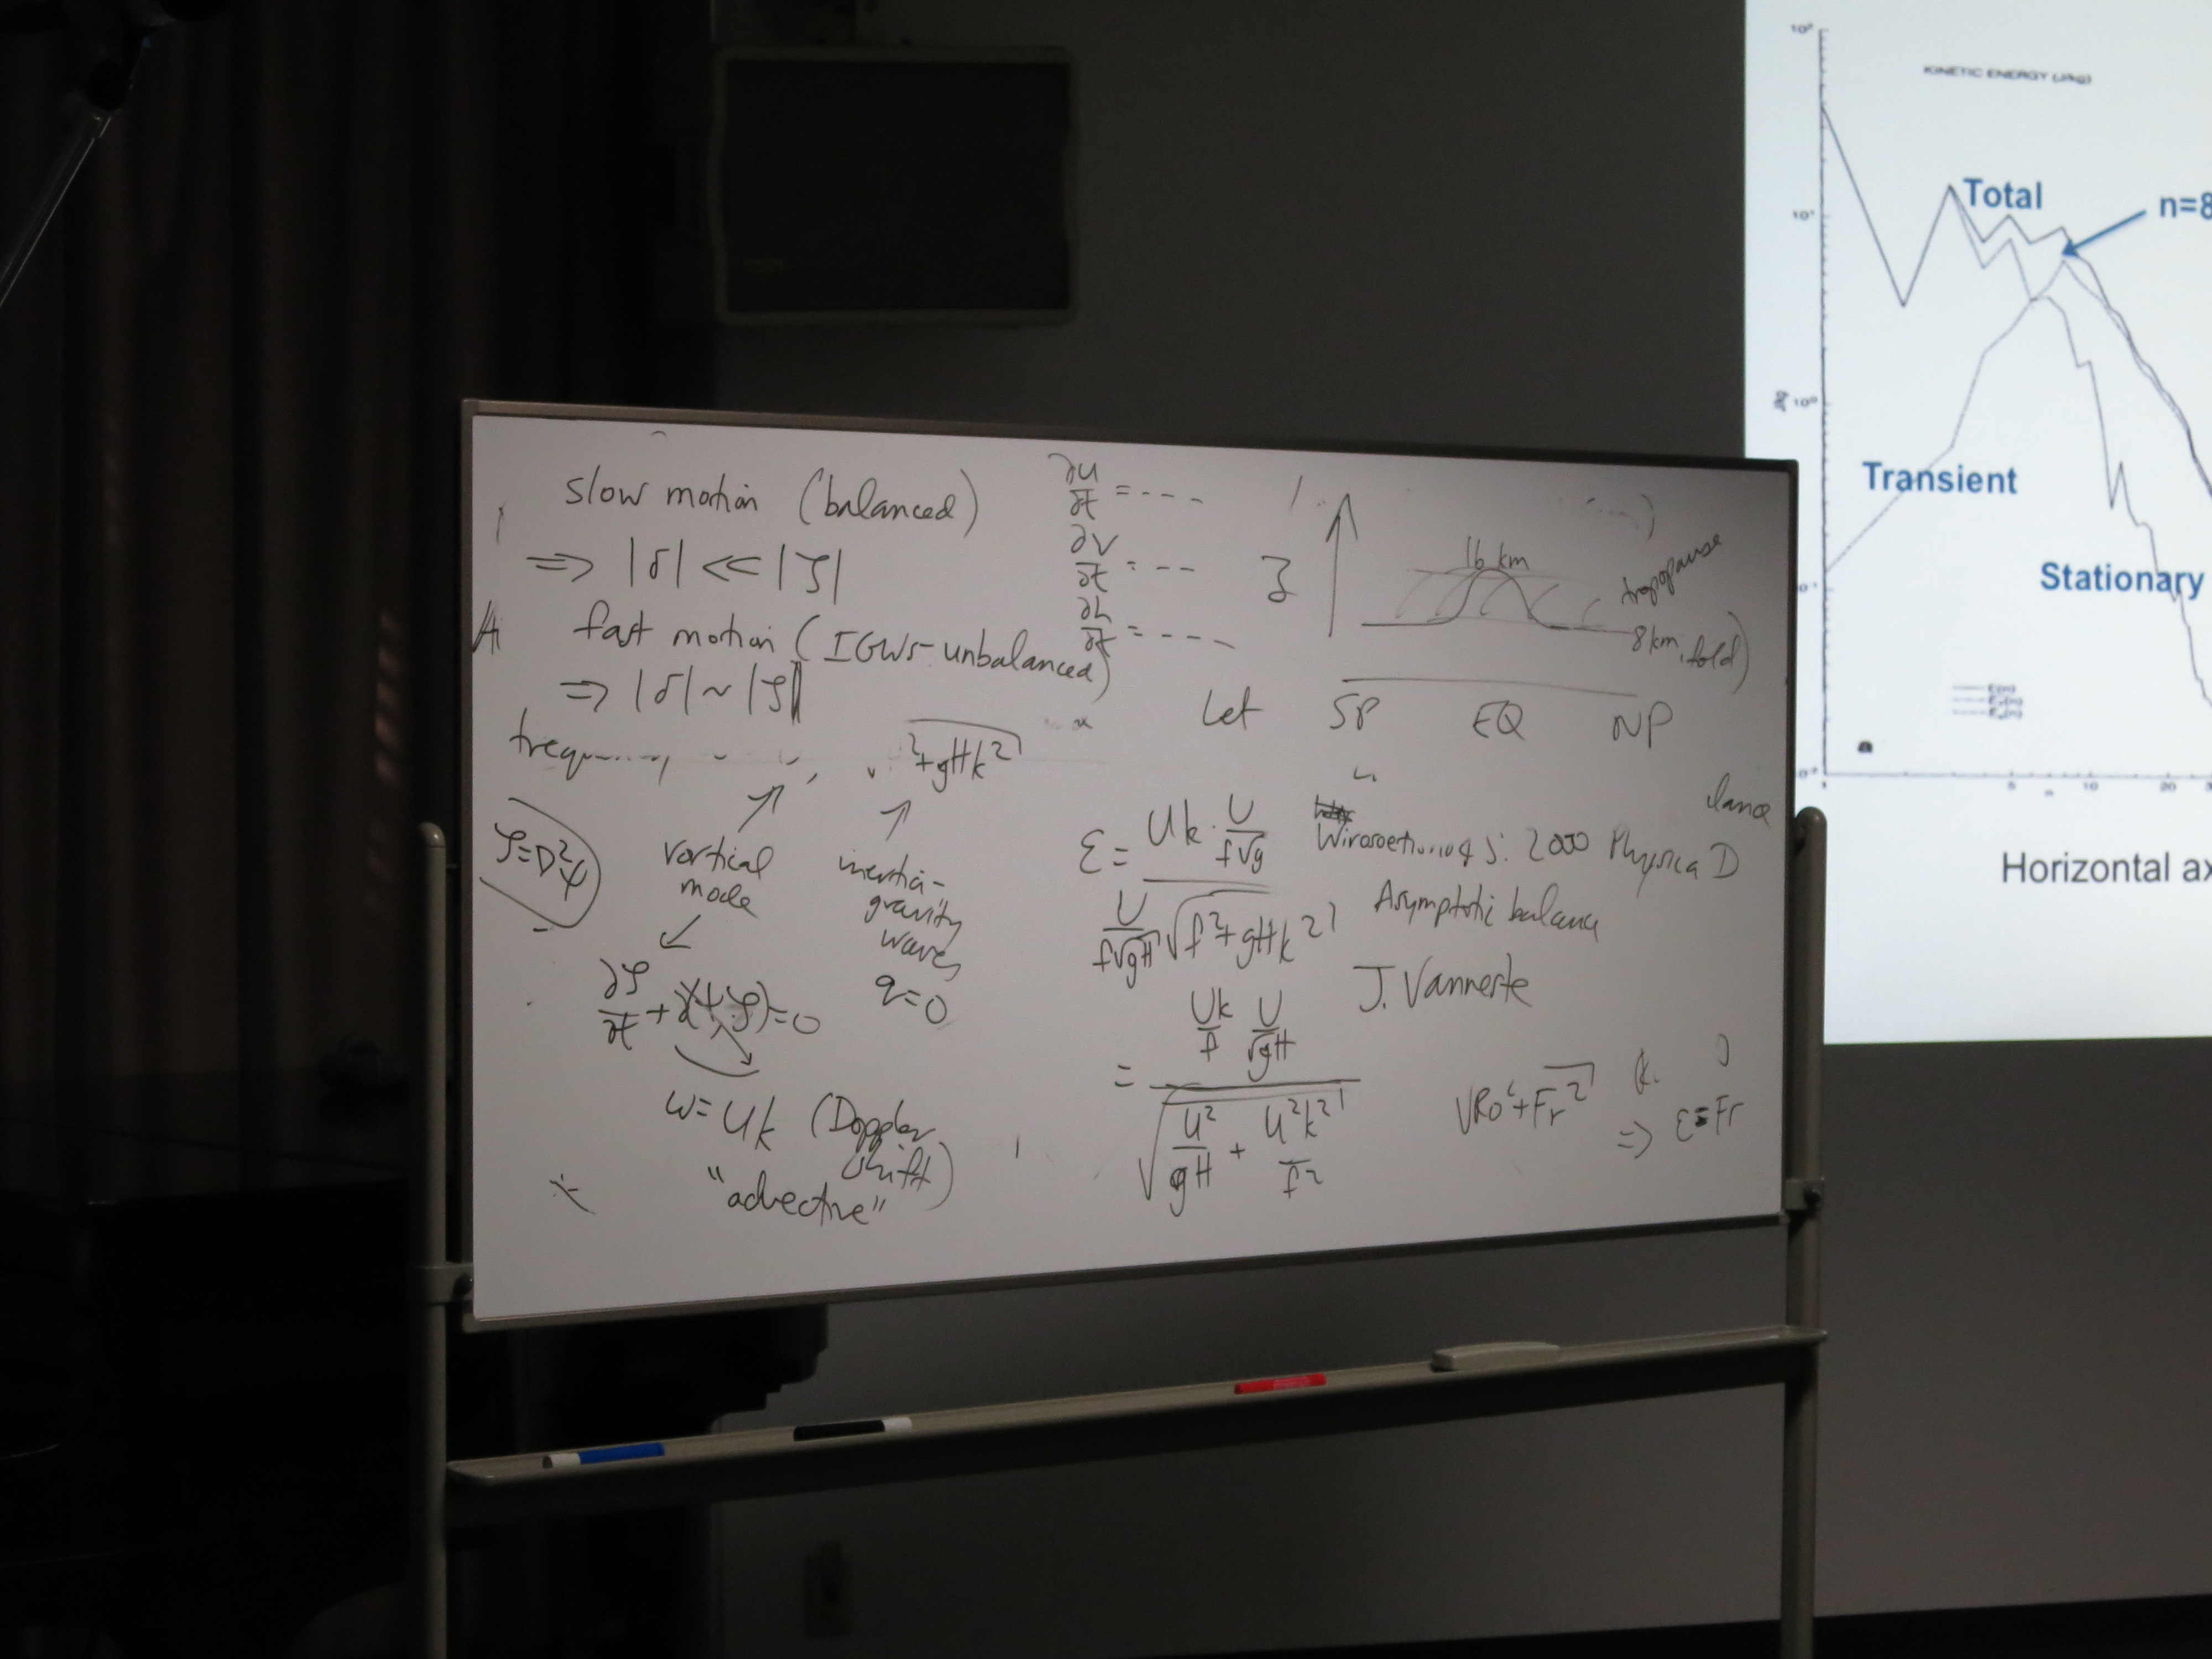 slow motion (balanced)
⇒ |δ| << |ζ|
fast motion (IGWs-unbalanced)
⇒ |δ| ~ |ζ|
²+gHk²
ζ=∇²ψ
vortical
mode
inertia-
gravity
waves
q=0
∂ζ/∂t + J(ψ,ζ)=0
ω=Uk (Doppler
shift)
"advective"
∂u/∂t = ----
∂v/∂t = ---
∂h/∂t = ----
Let
z
16 km
tropopause
8km
fold)
SP EQ NP
ε = (Uk · U/f√g) / (U/f√gH √f²+gHk²)
= (Uk/f U/√gH) / √(U²/gH + U²k²/f²)
2000 Physica D
Asymptotic balance
J. Vanneste
√Ro²+Fr²
⇒ ε=Fr
KINETIC ENERGY (J/kg)
Total
n=8
Transient
Stationary
10¹
10⁰
a
1 5 10 20
n
Horizontal ax